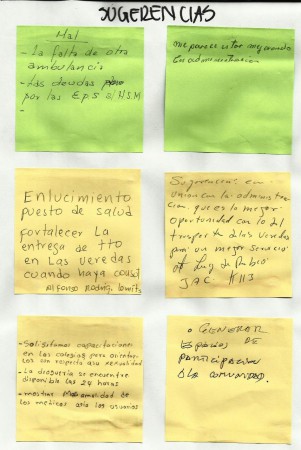 SUGERENCIAS
Mal
- La falta de otra
ambulancia
- Las deudas
por las E.P.S al H.S.M
-
me parece estar mejorando
la administracion
Enlucimiento
puesto de salud
fortalecer La
entrega de tto
en Las veredas
cuando haya consul
Alfonso Rodrig.
Sugerencias en
union con la administra-
cion, que es la mejor
oportunidad con lo del
trasporte a las veredas
para un mejor servicio
Luz de Rubio
JAC K113
- Solisitamos capacitaciones
en los colegios para orientar
los con respeto a su sexualidad
- La drogueria se encuentre
disponible las 24 horas
- mostrar mas amabilidad de
los medicos asia los usuarios
o GENERAR
ESPACIOS DE
PARTICIPACION
A LA COMUNIDAD.